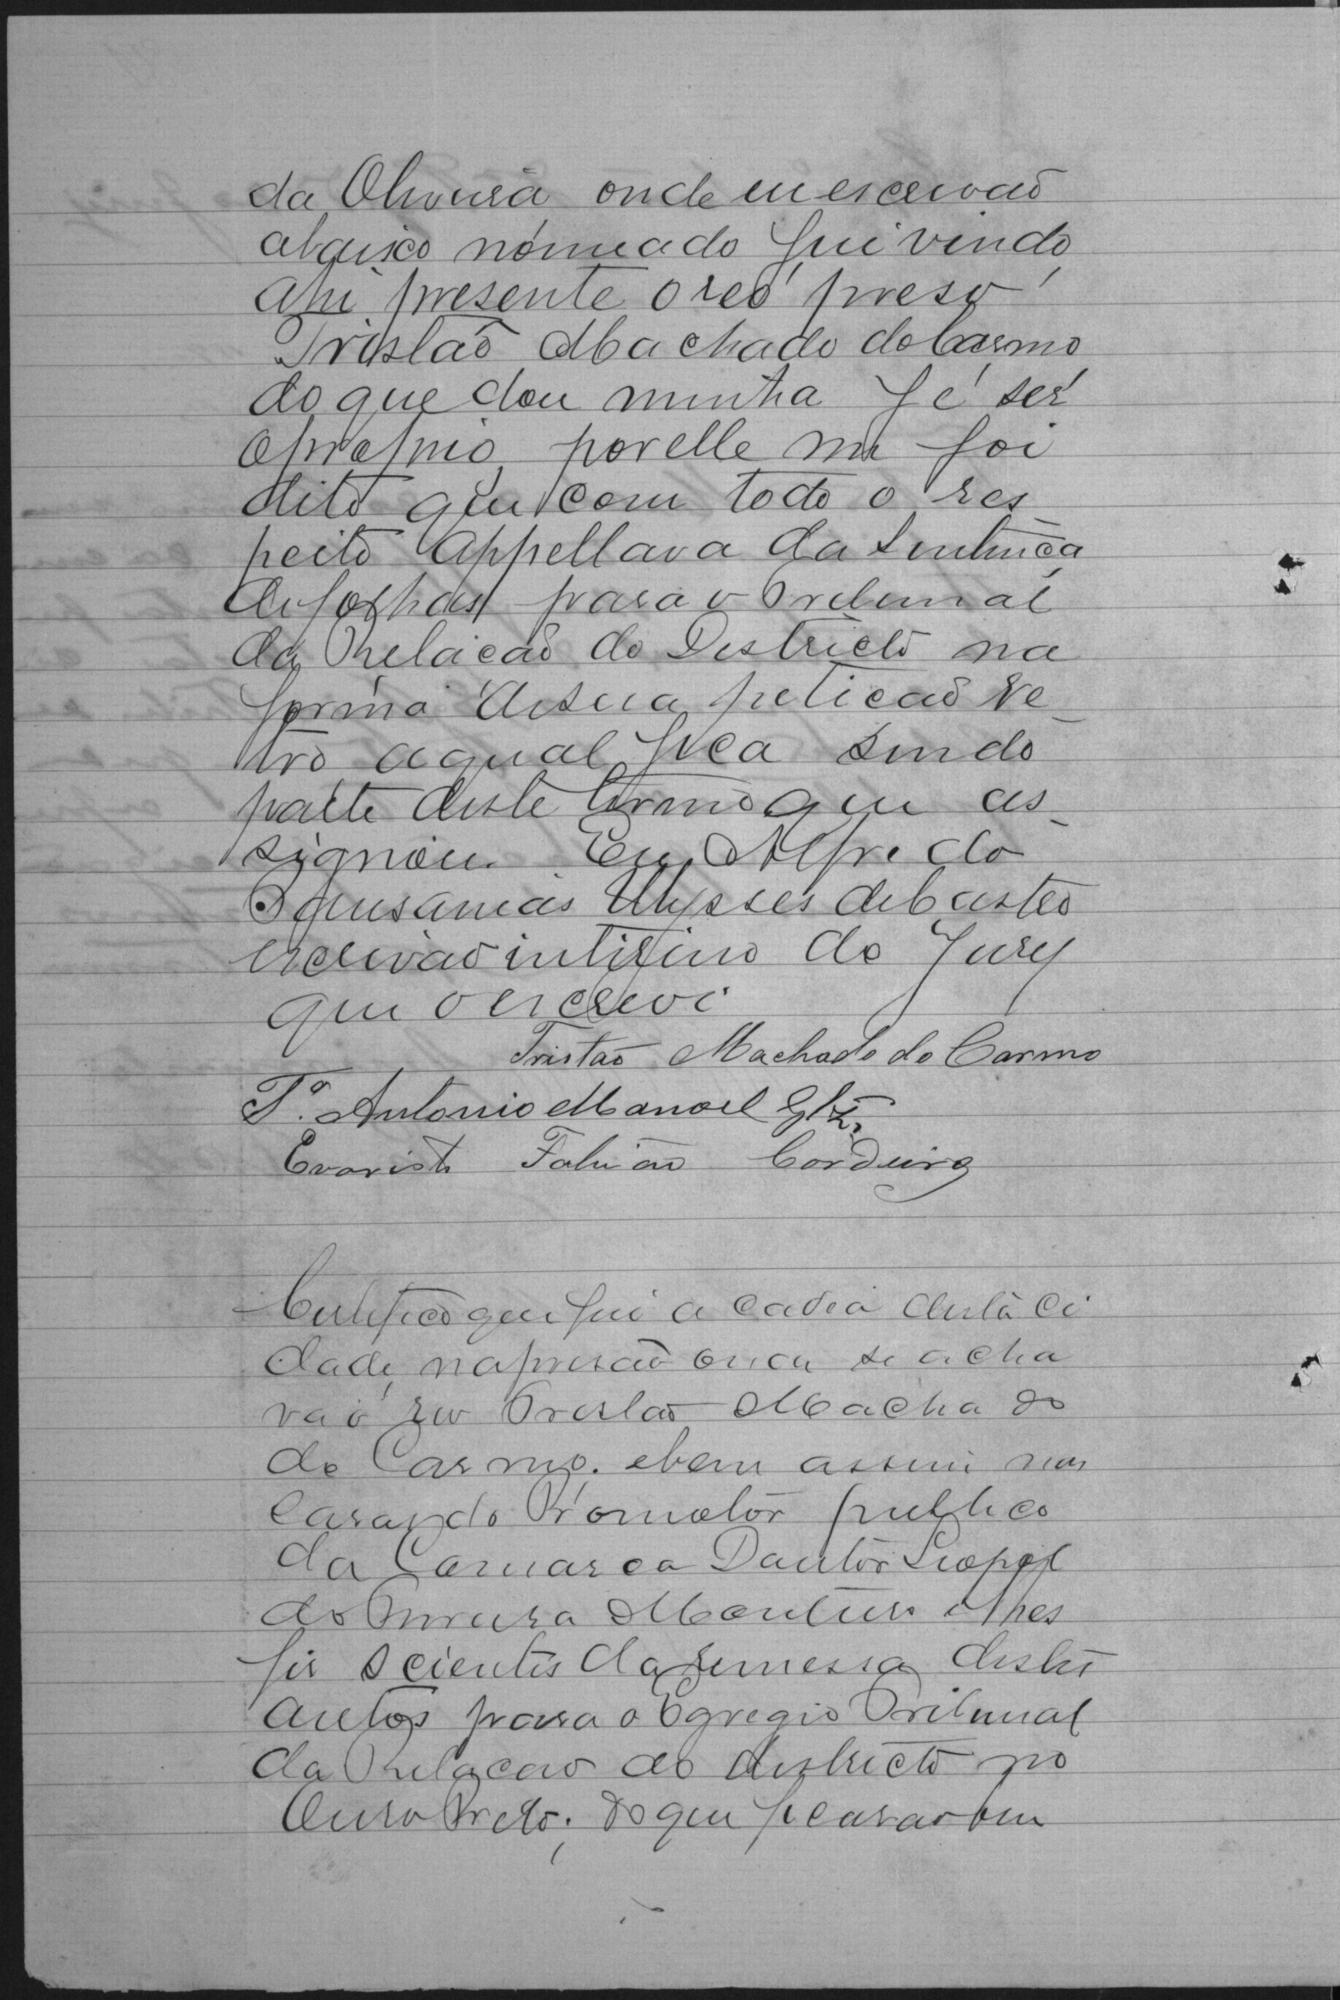 da Oliveira onde eu escrivaõ
abaixo nomeado fui vindo
ahi presente o reo preso
Tristaõ Machado do Carmo
do que dou minha fé ser
o proprio, por elle me foi
dito que com todo o res
peito appellava da Sentença
de folhas para o Tribunal
da Relacaõ do Districto na
forma de sua peticaõ re-
tro a qual fica sendo
parte deste termo que as-
signou. Eu Alfredo
Pausanias Ulysses de Castro
escrivaõ interino do Jury
que o escrevi
Tristaõ Machado do Carmo
Tª. Antonio Manoel Glz.
Evaristo Fabiaõ Cordeiro
Certifico que fui a cadeia desta Ci
dade, na prisaõ onde se acha
va o reo Tristaõ Machado
do Carmo. e bem assim nas
Casas do Promotor publico
da Comarca Doutor Leopol
do Monteiro e lhes
fis scientes da remessa destes
autos para o Egregio Tribunal
da Relacaõ do districto no
Ouro Preto; do que ficaraõ bem